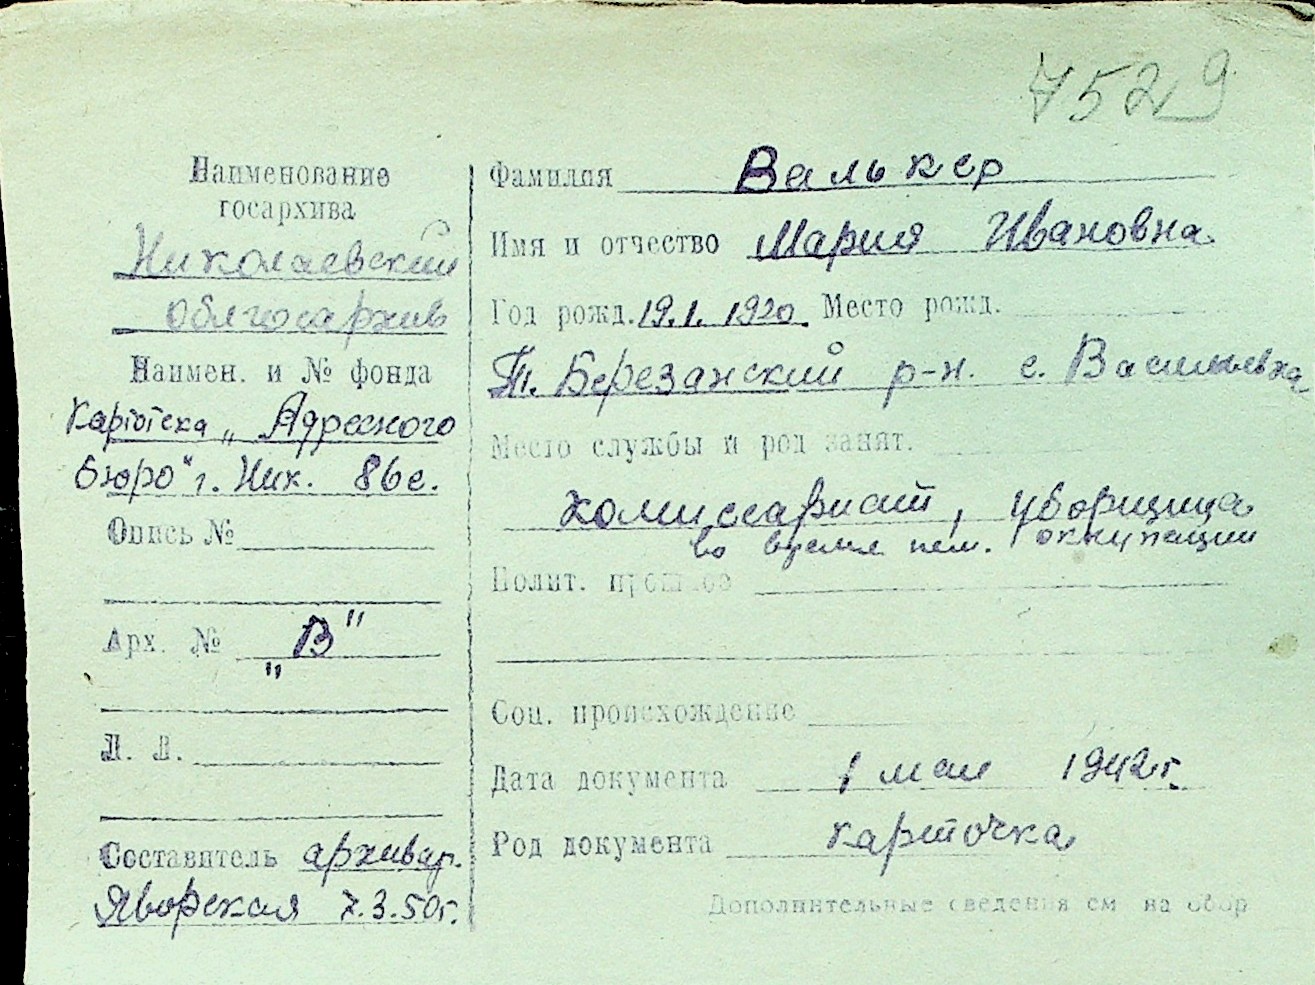 7529
Наименование
госархива
Николаевский
облгосархив
Наимен. и № фонда
Картотека „Адресного
бюро" г. Ник. 86 с.
Опись №
Арх. № „В"
Л. Л.
Составитель архивар.
Яворская 7.3.50г.
Фамилия Валькер
Имя и отчество Мария Ивановна
Год рожд. 19.1.1920. Место рожд.
Т. Березанский р-н. с. Васильевка
Место службы и род занят.
комиссариат, уборщица
во время нем. оккупации
Полит. прошлое
Соц. происхождение
Дата документа 1 мая 1942 г.
Род документа карточка
Дополнительные сведения см на обор